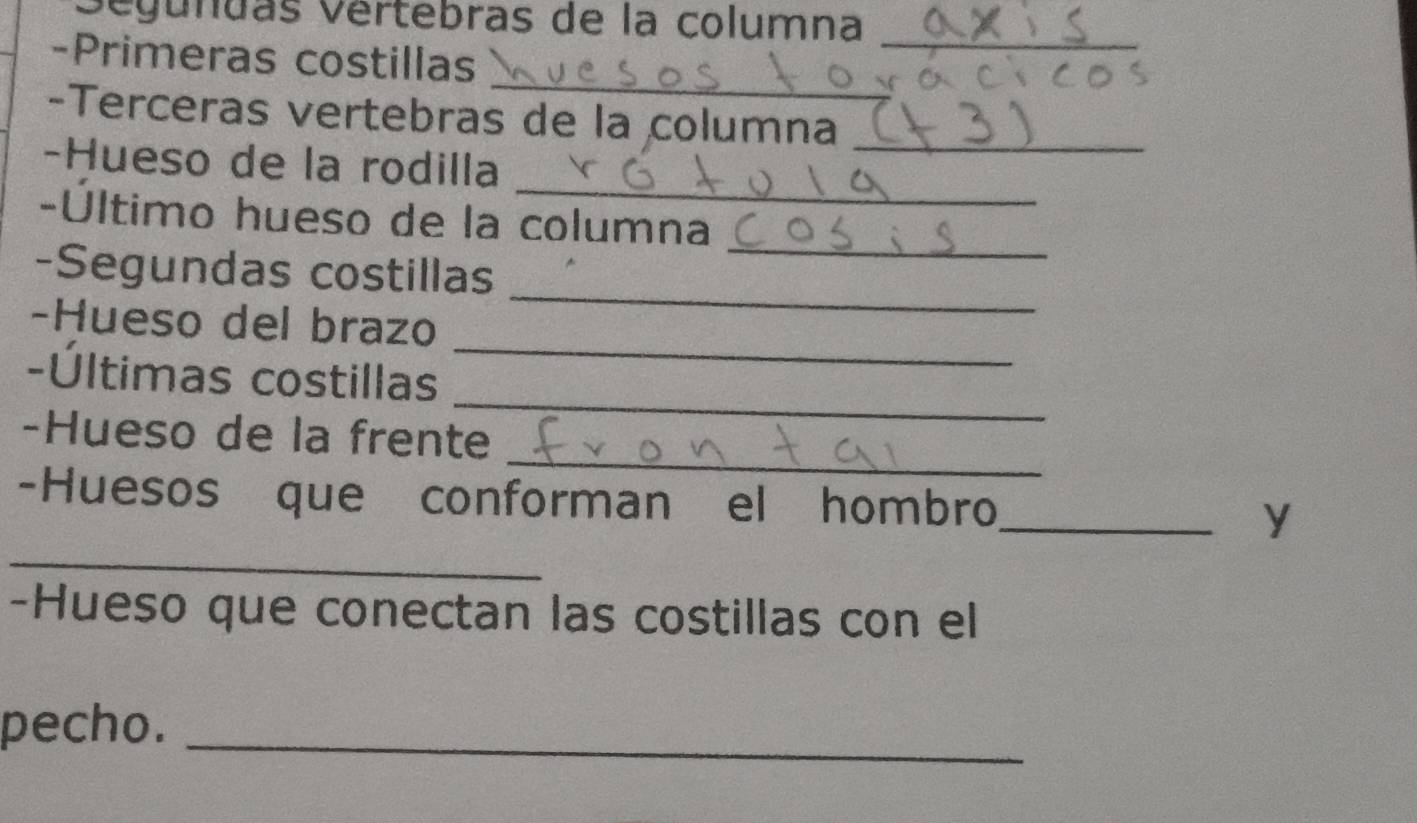 Segundas vertebras de la columna axis
-Primeras costillas huesos torácicos
-Terceras vertebras de la columna (t3)
-Hueso de la rodilla rótula
-Último hueso de la columna cosis
-Segundas costillas
-Hueso del brazo
-Últimas costillas
-Hueso de la frente frontal
-Huesos que conforman el hombro y
-Hueso que conectan las costillas con el
pecho.